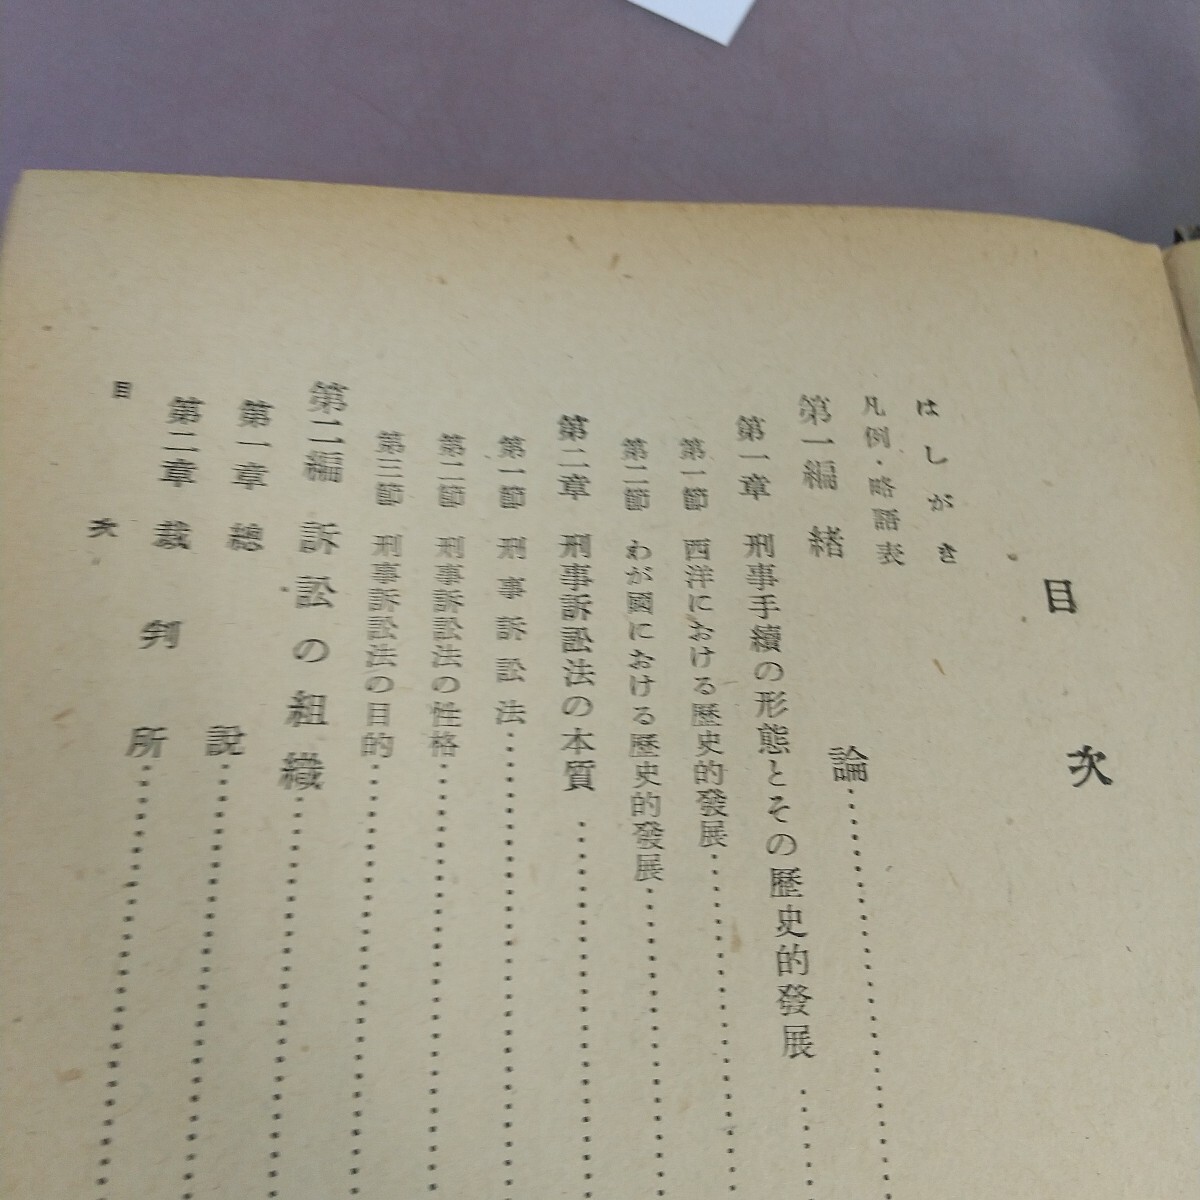 目次
はしがき
凡例・略語表
第一編 緒論
第一章 刑事手續の形態とその歷史的發展
第一節 西洋における歷史的發展
第二節 わが國における歷史的發展
第二章 刑事訴訟法の本質
第一節 刑事訴訟法
第二節 刑事訴訟法の性格
第三節 刑事訴訟法の目的
第二編 訴訟の組織
第一章 總說
第二章 裁判所
目次